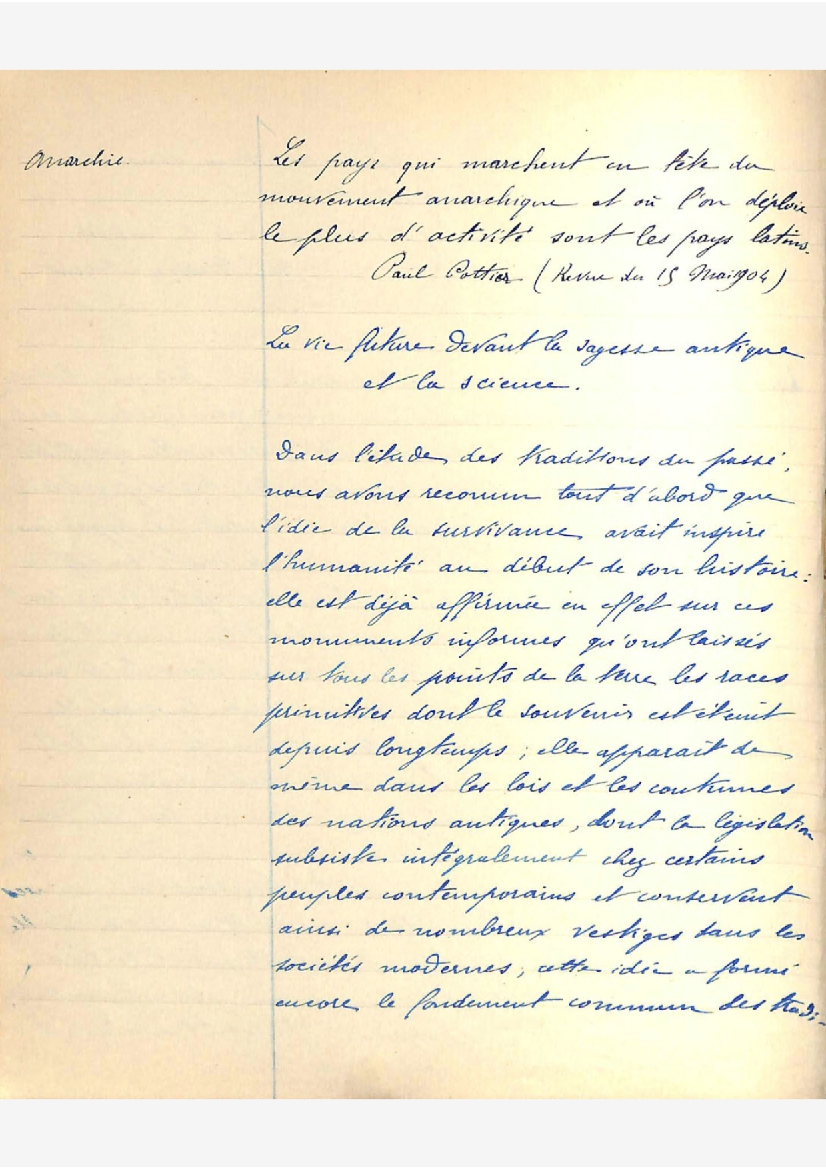 Anarchie.
Les pays qui marchent en tête du
mouvement anarchique et où l'on déploie
le plus d'activité sont les pays latins.
Paul Pottier (Revue du 15 Mai 1904)
La vie future devant la sagesse antique
et la science.
Dans l'étude des traditions du passé,
nous avons reconnu tout d'abord que
l'idée de la survivance avait inspiré
l'humanité au début de son histoire :
elle est déjà affirmée en effet sur ces
monuments informes qu'ont laissés
sur tous les points de la terre les races
primitives dont le souvenir est éteint
depuis longtemps ; elle apparait de
même dans les lois et les coutumes
des nations antiques, dont la législation
subsiste intégralement chez certains
peuples contemporains et conservent
ainsi de nombreux vestiges dans les
sociétés modernes ; cette idée a formé
encore le fondement commun des tradi-